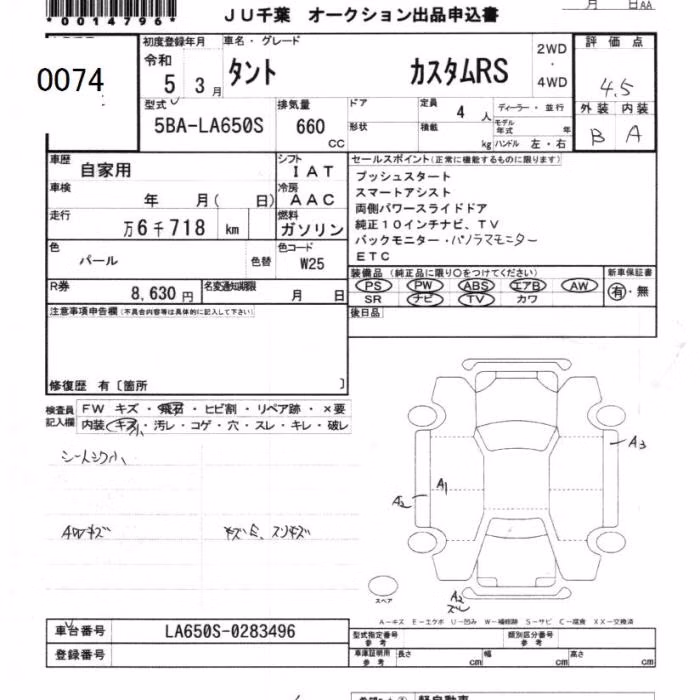 *0014796*
JU千葉 オークション出品申込書
月 日AA
0074
初度登録年月
令和
5 3月
車名・グレード
タント カスタムRS
2WD
・
4WD
評価点
4.5
型式
5BA-LA650S
排気量
660
CC
ドア
形状
定員
4 人
積載
kg
ディーラー・並行
モデル年式 年
ハンドル 左・右
外装 内装
B A
車歴
自家用
シフト
IAT
車検
年 月( 日)
冷房
AAC
走行
万6千718 km
燃料
ガソリン
色
パール
色替
色コード
W25
R券
8,630円
名変通知期限
月 日
セールスポイント(正常に機能するものに限ります)
プッシュスタート
スマートアシスト
両側パワースライドドア
純正10インチナビ、TV
バックモニター・パノラマモニター
ETC
装備品(純正品に限り○をつけてください)
PS PW ABS エアB AW
SR ナビ TV カワ
新車保証書
有・無
後日品
注意事項申告欄(不具合内容等は具体的に記入して下さい)
修復歴 有〔箇所 〕
検査員
記入欄
FW キズ・飛石・ヒビ割・リペア跡・×要
内装・キズ・汚レ・コゲ・穴・スレ・キレ・破レ
小
シートシワ小
AWキズ
キズミ、スリキズ
A3
A1
A2
A2
スペア
A−キズ E−エクボ U−凹み W−補修跡 S−サビ C−腐食 XX−交換済
車台番号
LA650S-0283496
登録番号
型式指定番号
参考
類別区分番号
参考
車庫証明用
参考
長さ cm
幅 cm
高さ cm
軽自動車